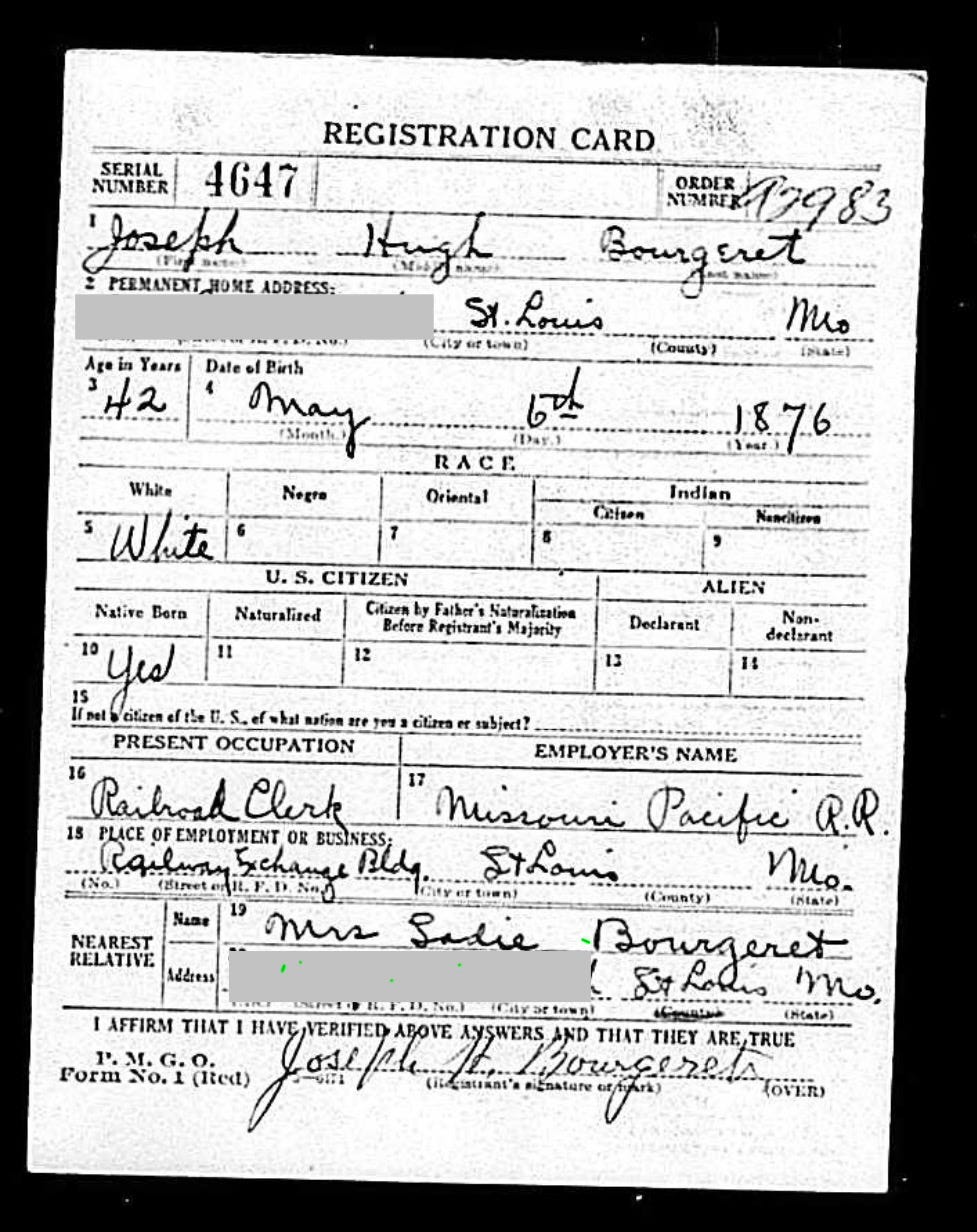 REGISTRATION CARD
SERIAL NUMBER 4647 ORDER NUMBER A2983
1 Joseph Hugh Bourgeret
(First name) (Middle name) (Last name)
2 PERMANENT HOME ADDRESS:
St. Louis Mo
(City or town) (County) (State)
Age in Years Date of Birth
3 42 4 May 6th 1876
(Month.) (Day.) (Year.)
RACE
White Negro Oriental Indian
Citizen Noncitizen
5 White 6 7 8 9
U. S. CITIZEN ALIEN
Native Born Naturalized Citizen by Father's Naturalization Before Registrant's Majority Declarant Non-declarant
10 Yes 11 12 13 14
15
If not a citizen of the U. S., of what nation are you a citizen or subject?
PRESENT OCCUPATION EMPLOYER'S NAME
16 Railroad Clerk 17 Missouri Pacific R.R.
18 PLACE OF EMPLOYMENT OR BUSINESS:
Railway Exchange Bldg. St Louis Mo.
(No.) (Street or R. F. D. No.) (City or town) (County) (State)
NEAREST RELATIVE Name 19 Mrs Sadie Bourgeret
Address St Louis Mo.
(Street or R. F. D. No.) (City or town) (County) (State)
I AFFIRM THAT I HAVE VERIFIED ABOVE ANSWERS AND THAT THEY ARE TRUE
P. M. G. O.
Form No. 1 (Red) Joseph H. Bourgeret
(Registrant's signature or mark) (OVER)